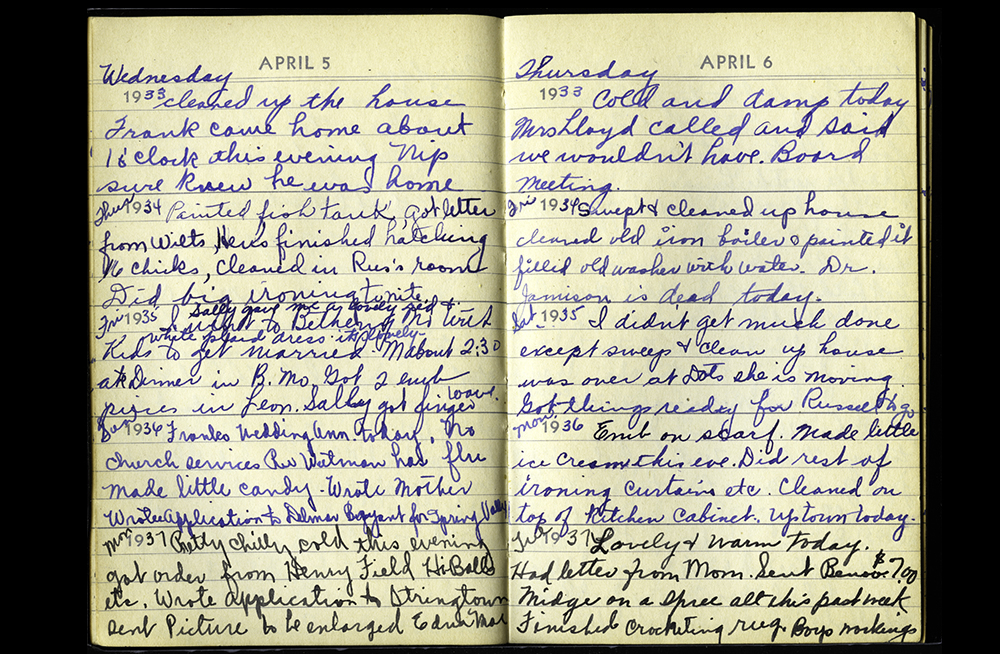 APRIL 5
Wednesday
1933 cleaned up the house
Frank came home about
1 o'clock this evening Nip
sure knew he was home
Thur 1934 Painted fish tank, got letter
from Wilts, Hens finished hatching
16 chicks, cleaned in Rus's room
Did big ironing tonite
Fri 1935 Sally gave me a lovely red &
white plaid dress its lovely
I went to Bethany Mo with
Kids to get married. M about 2:30
ate Dinner in B. Mo, Got 2 emb
pieces in Leon. Sally got finger
wave.
1936 Franks Wedding Ann. today. No
church services Rev Wutman has flu
made little candy. Wrote Mother
Wrote Application to Delmar Bryant for Spring Valley
Mon 1937 Pretty chilly, cold this evening
got order from Henry Field Hi-Balls
etc. Wrote application to Stringtown
sent Picture to be enlarged Edna Mae
APRIL 6
Thursday
1933 Cold and damp today
Mrs Lloyd called and said
we wouldn't have. Board
meeting.
Fri 1934 Swept & cleaned up house
cleaned old iron boiler & painted it
filled old washer with water. Dr.
Jamison is dead today.
Sat 1935 I didn't get much done
except sweep & clean up house
was over at Dots she is moving.
Got things ready for Russell to go
Mon 1936 Emb on scarf. Made little
ice cream this eve. Did rest of
ironing curtains etc. Cleaned on
top of Kitchen Cabinet. Uptown today.
1937 Lovely & warm today.
Had letter from Mom. Sent $7.00
Midge on a spree all this past week
Finished crocheting rug. Boys working